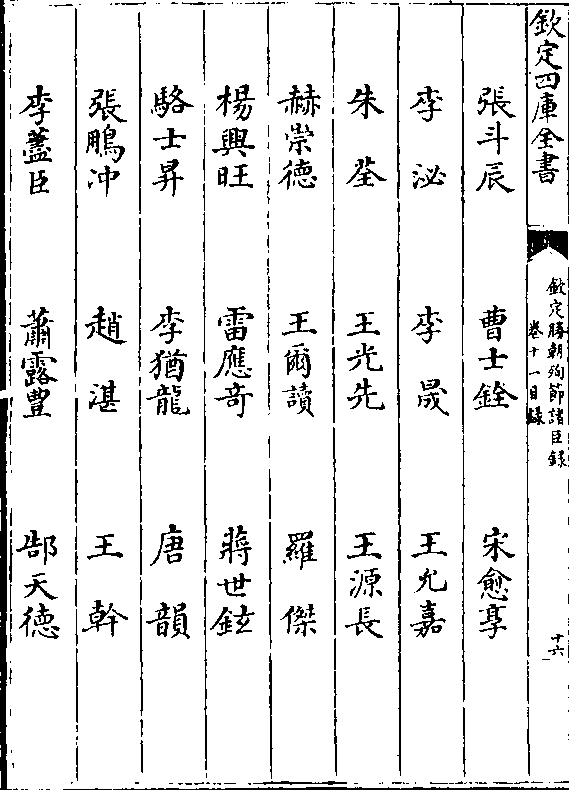 欽定四庫全書
欽定勝朝殉節諸臣錄
卷十一目錄
十六
張斗辰 曹士銓 宋愈亨
李泌 李晟 王允嘉
朱荃 王光先 王源長
赫崇德 王爾讀 羅傑
楊興旺 雷應奇 蔣世鉉
駱士昇 李猶龍 唐韻
張鵬沖 趙湛 王幹
李藎臣 蕭露豐 郜天德